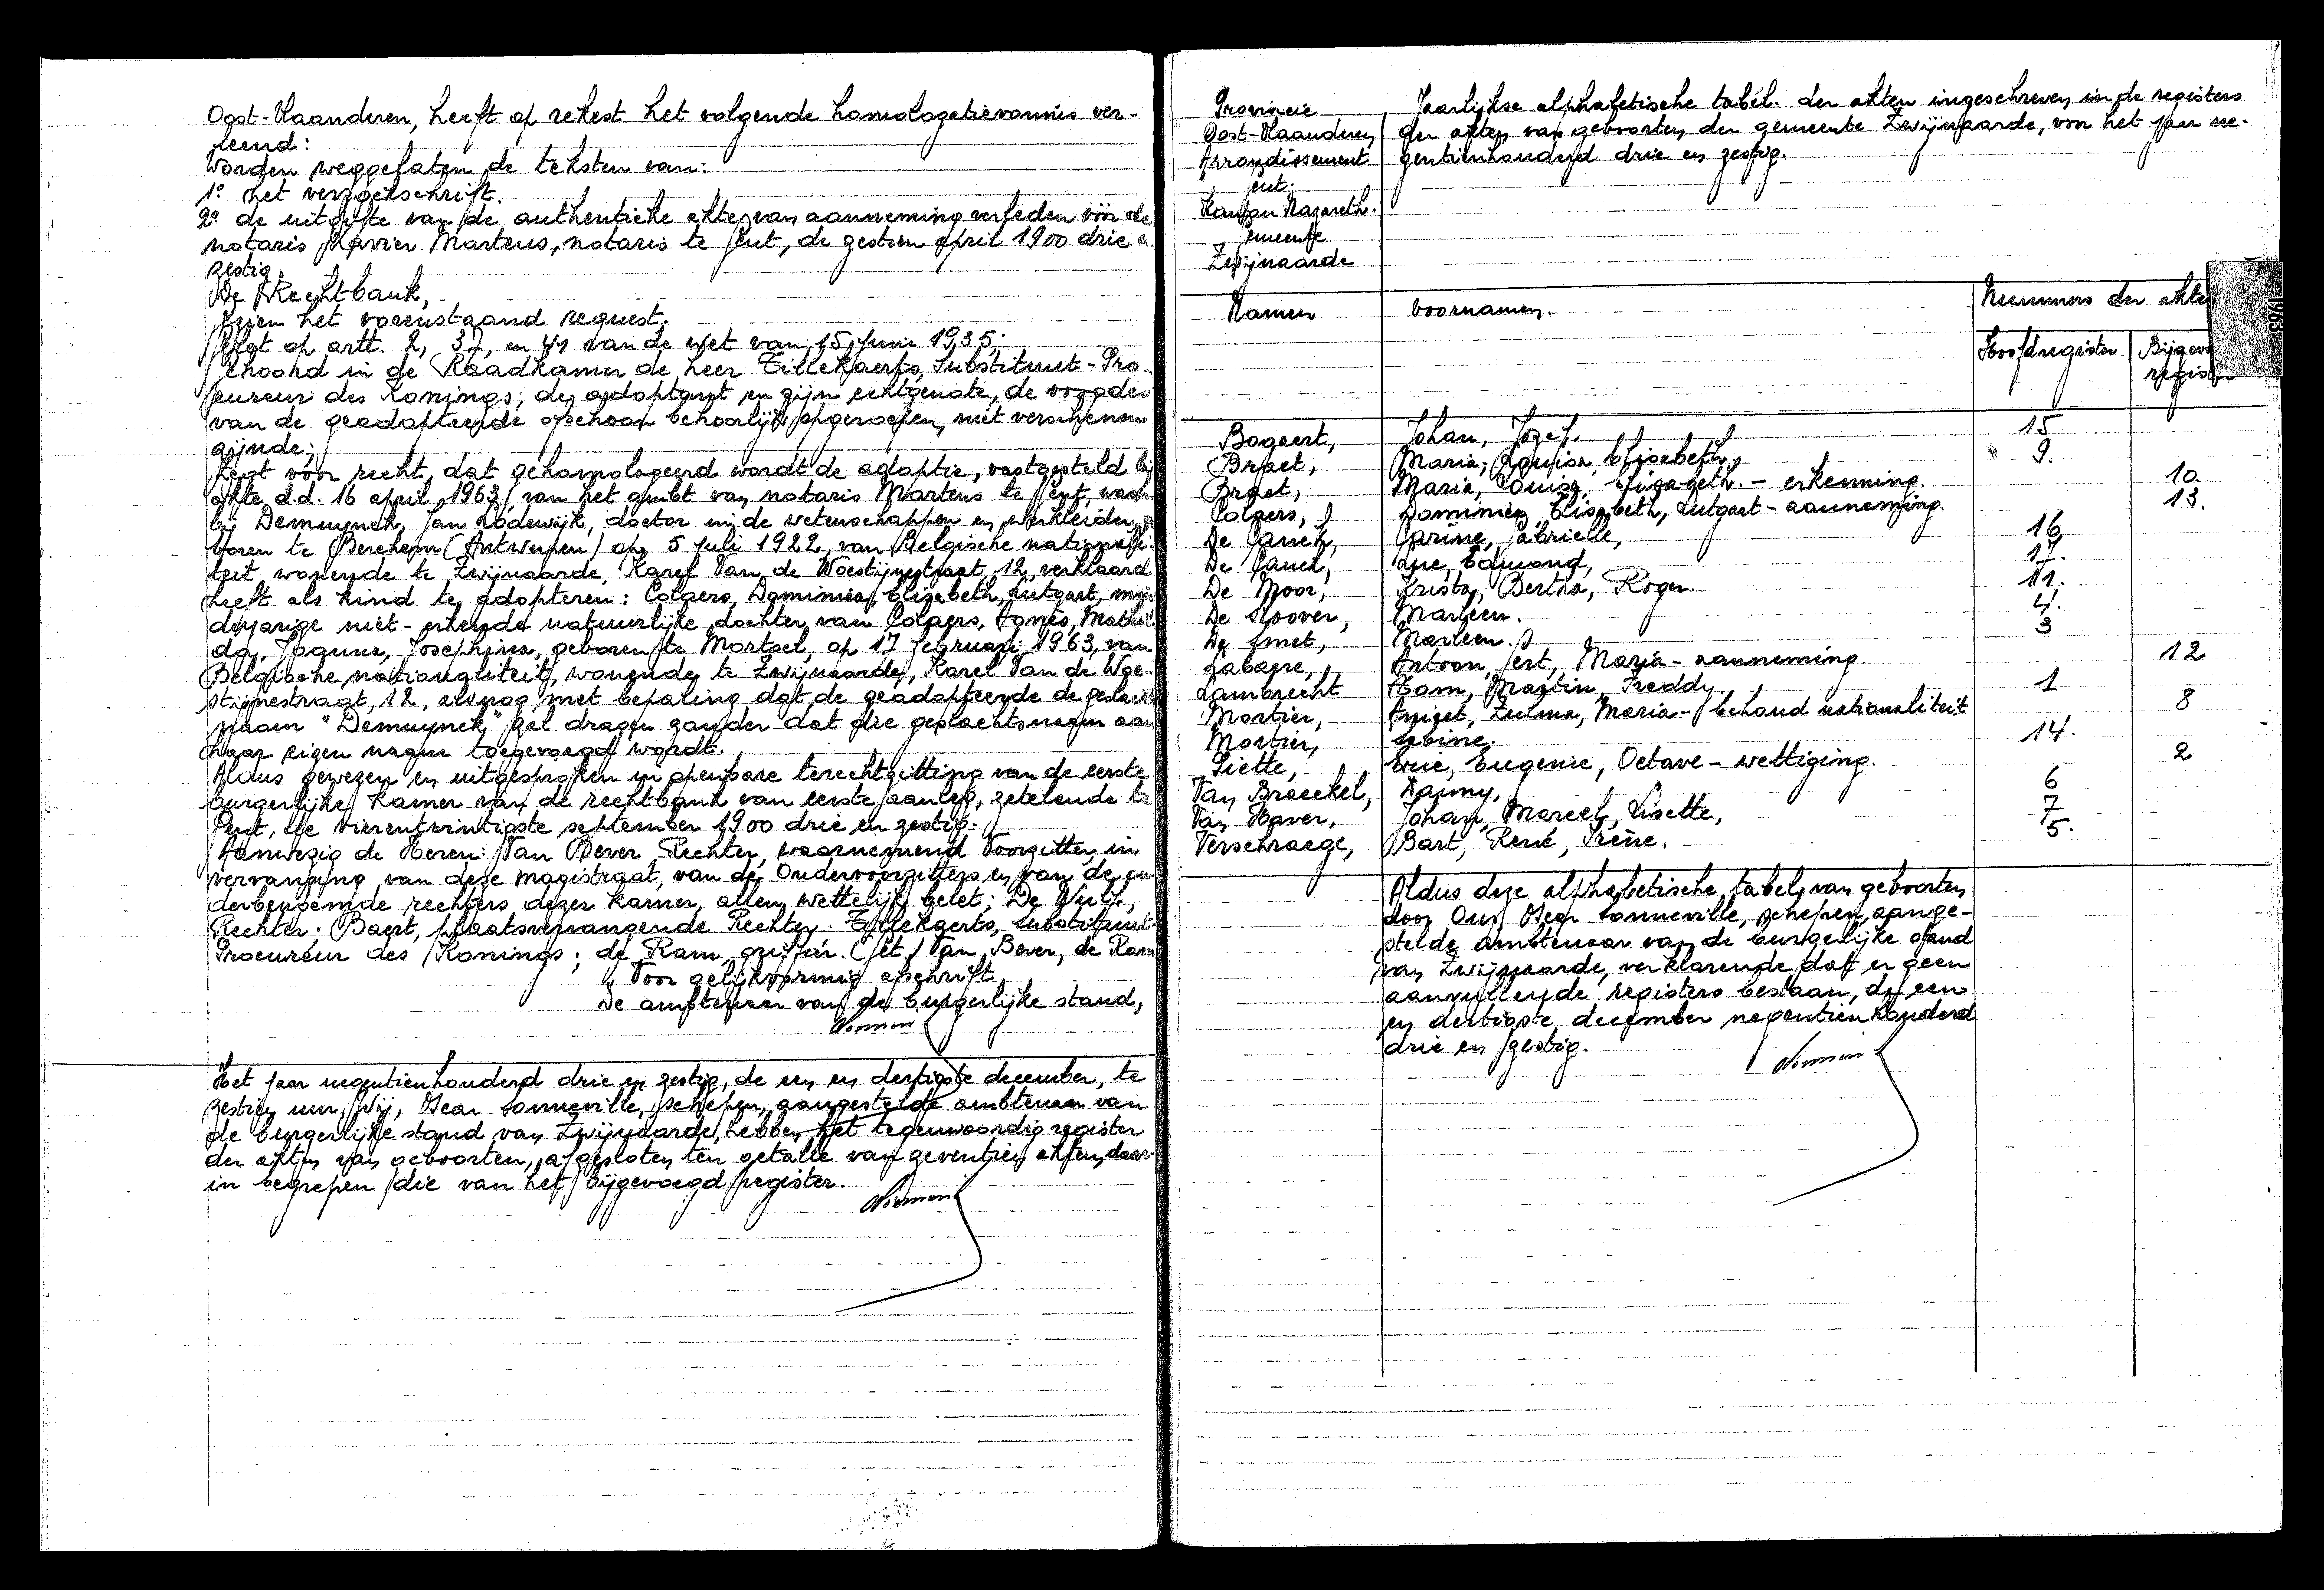 Oost-Vlaanderen, heeft op rekest het volgende homologatievonnis ver-
leend:
Worden weggelaten de teksten van:
1° het verzoekschrift.
2° de uitgifte van de authentieke akte van aanneming verleden vóór de
notaris Xavier Martens, notaris te Gent, de zestien april 1900 drie e
zestig.
De Rechtbank,
Gezien het vorenstaand request.
Gelet op artt. 2, 37, en 41 van de wet van 15 Junie 1935;
Gehoord in de Raadkamer de heer Tillekaerts, Substituut-Pro-
cureur des Konings; de adoptant en zijn echtgenote, de voogden
van de geadopteerde ofschoon behoorlijk opgeroepen, niet verschenen
zijnde;
Zegt voor recht, dat gehomologeerd wordt de adoptie, vastgesteld bij
akte d.d. 16 april 1963, van het ambt van notaris Martens te Gent, waar
bij Demuynck, Jan Lodewijk, doctor in de wetenschappen en werkleider, ge
boren te Berchem (Antwerpen) op 5 juli 1922, van Belgische nationali-
teit, wonende te Zwijnaarde, Karel Van de Woestijnestraat, 12, verklaard
heeft als kind te adopteren: Colpers, Dominica, Elisabeth, Lutgart, min
derjarige niet-erkende natuurlijke dochter van Colpers, Agnès, Mathil
da, Joanna, Josephina, geboren te Mortsel, op 17 februari 1963, van
Belgische nationaliteit, wonende te Zwijnaarde, Karel Van de Woe-
stijnestraat, 12, alsnog met bepaling dat de geadopteerde de geslachts
naam "Demuynck" zal dragen zonder dat die geslachtsnaam aan
haar eigen naam toegevoegd wordt.
Aldus gewezen en uitgesproken in openbare terechtzitting van de eerste
burgerlijke Kamer van de rechtbank van eerste aanleg, zetelende te
Gent, de vierentwintigste september 1900 drie en zestig.
Aanwezig de Heren: Van Bever, Rechter, waarnemend Voorzitter, in
vervanging van deze magistraat, van de Ondervoorzitters en van de an
derbenoemde rechters dezer Kamer, allen wettelijk belet; De Wulf,
Rechter. Baert, plaatsvervangende Rechter. Tillekaerts, Substituut-
Procureur des Konings; de Ram, griffier. (Get.) Van Bever, de Ram
Voor gelijkvormig afschrift,
De ambtenaar van de burgerlijke stand,
Het jaar negentienhonderd drie en zestig, de een en dertigste december, te
zestien uur, Wij, Oscar Sonneville, schepen, aangestelde ambtenaar van
de burgerlijke stand van Zwijnaarde, hebben het tegenwoordig register
der akten van geboorten, afgesloten ten getalle van zeventien akten, daar-
in begrepen die van het bijgevoegd register.
Provincie
Oost-Vlaanderen
Arrondissement
Gent.
Kanton Nazareth.
Gemeente
Zwijnaarde
Jaarlijkse alphabetische tabel der akten ingeschreven in de registers
der akten van geboorten der gemeente Zwijnaarde, voor het jaar ne-
gentienhonderd drie en zestig.
Namen Voornamen. Nummers der akte
Hoofdregister. Bijgev
regist
1963
Bogaert, Johan, Jozef. 15
Braet, Maria, Louisa, Elisabeth, 9.
Braet, Maria, Louisa, Elisabeth. - erkenning. 10.
Colpers, Dominica, Elisabeth, Lutgart - aanneming. 13.
De Cauch, Carine, Gabrielle, 16
De Cauch, Luc, Edmond, 17.
De Moor, Krista, Bertha, Roger. 11.
De Roover, Marleen. 4.
De Smet, Marleen. 3
Labaere, Antoon, Gert, Maria - aanneming. 12
Lambrecht Hans, Martin, Freddy. 1
Mortier, Anniet, Zulma, Maria - behoud nationaliteit 8
Mortier, Sabine. 14.
Piette, Eric, Eugenie, Octave - wettiging. 2
Van Braeckel, Danny, 6
Van Haver, Johan, Marcel, Lisette, 7
Verschraege, Bart, René, Irène. 5.
Aldus deze alphabetische tabel van geboorten
door Ons, Oscar Sonneville, schepen, aange-
stelde ambtenaar van de burgerlijke stand
van Zwijnaarde, verklarende dat er geen
aanvullende registers bestaan, de een
en dertigste december negentienhonderd
drie en zestig.